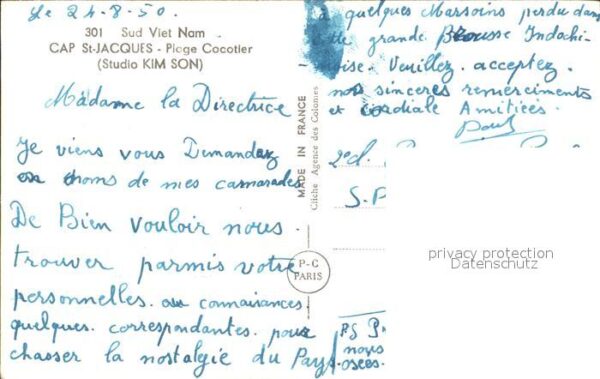 Le 24-8-50.
301 Sud Viet Nam
CAP St-JACQUES - Plage Cocotier
(Studio KIM SON)
Madame la Directrice
Je viens vous Demandez
au noms de mes camarades
De Bien vouloir nous.
trouver parmis votre
personnelles. ou connaisances.
quelques. correspondantes. pour
chasser la nostalgie du Pays.
MADE IN FRANCE
Cliché Agence des Colonies
P-C
PARIS
a quelques Marsoins perdu dans
grande Brousse Indochi-
noise. Veuillez. acceptez.
nos sinceres remerciments
et cordiale Amitiées.
Paul
2ed.
S.P
PS
nous
osées.
privacy protection
Datenschutz